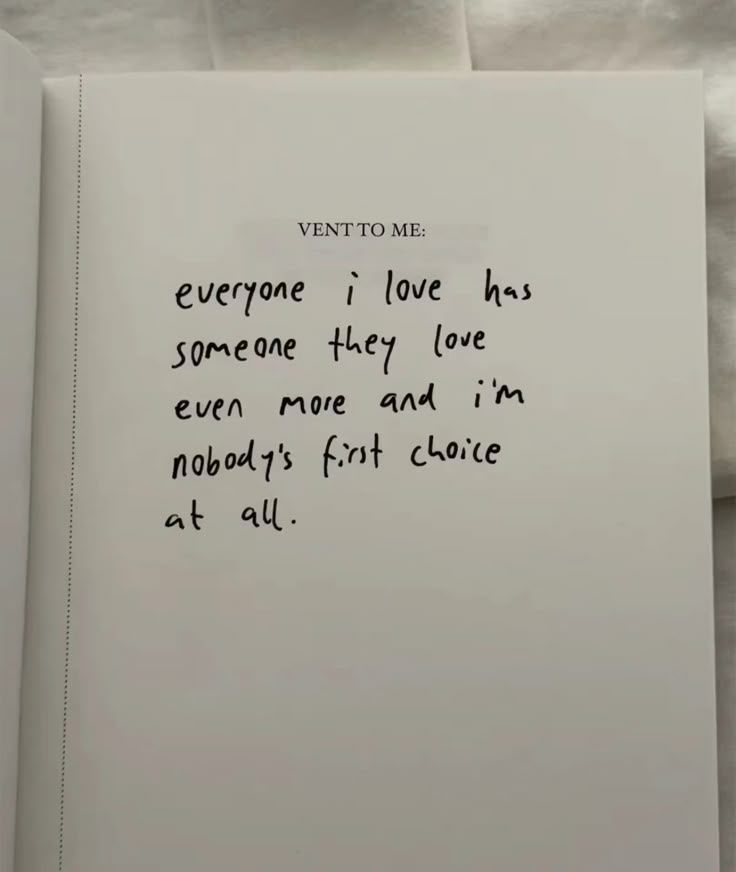 VENT TO ME:
everyone i love has
someone they love
even more and i'm
nobody's first choice
at all.